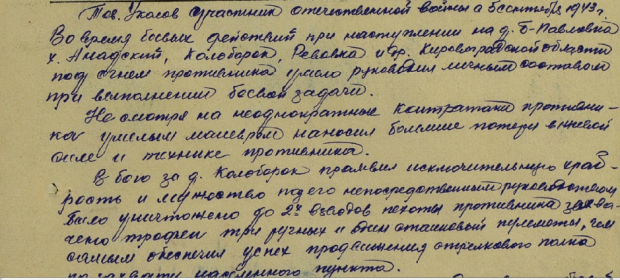 Тов. Уколов участник отечественной войны с сентября 1943 г.
Во время боевых действий при наступлении на д. Б-Павловка
х. Анадский, Колоборок, Ревовка и др. Кировоградской области
под огнем противника умело руководил личным составом
при выполнении боевой задачи.
Не смотря на неоднократные контратаки противни-
ка умелым маневром наносил большие потери в живой
силе и технике противника.
В бою за д. Колоборок проявил исключительную храб-
рость и мужество под его непосредственным руководством
было уничтожено до 2х взводов пехоты противника, захва-
чено трофеи три ручных и один станковый пулеметы, чем
самым обеспечил успех продвижения стрелкового полка
по захвату населенного пункта.